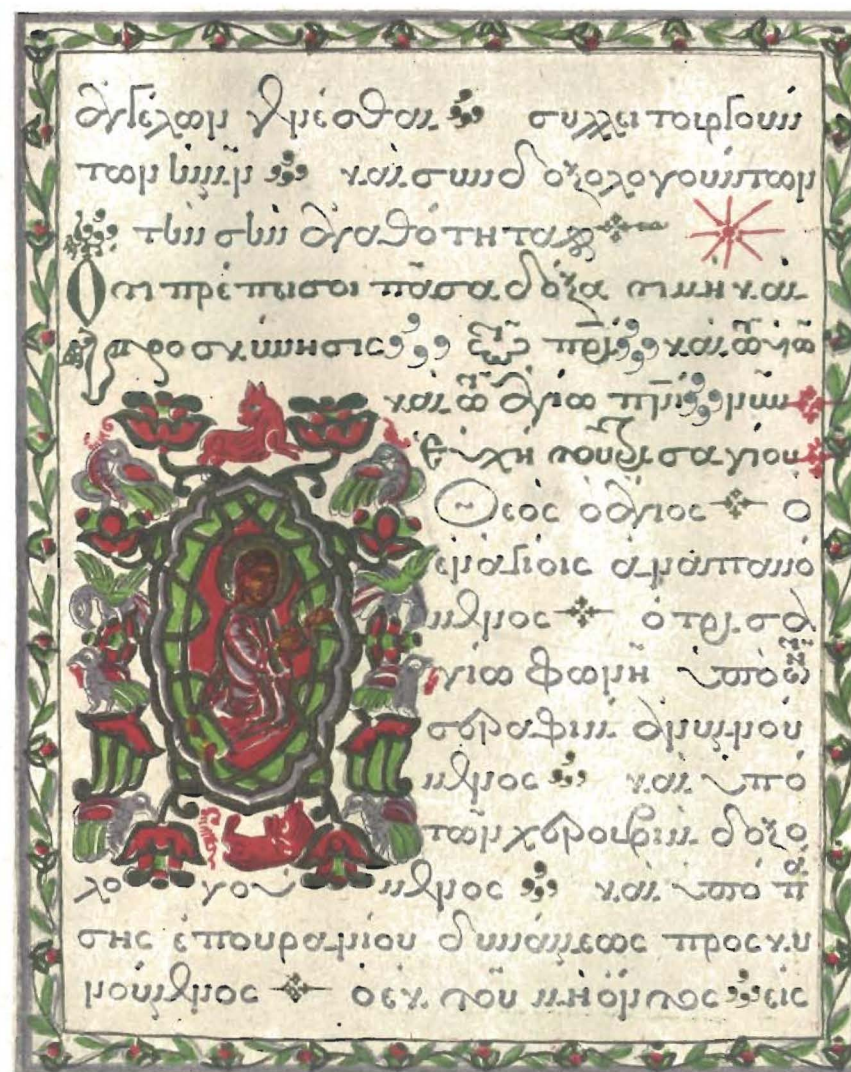 ἀγγέλων γενέσθαι συλλειτουργούν
των ἡμῖν καὶ συνδοξολογούντων
τὴν σὴν ἀγαθότητα
Ὅτι πρέπει σοι πᾶσα δόξα τιμὴ καὶ
προσκύνησις τῷ πρὶ καὶ τῷ υἱῷ
καὶ τῷ ἁγίῳ πνι νῦν
Εὐχὴ τοῦ τρισαγίου
Θεὸς ὁ ἅγιος ὁ
ἐν ἁγίοις ἀναπαυό
μενος ὁ τρισα
γίῳ φωνῇ ὑπὸ τῶν
σεραφὶμ ἀνυμνού
μενος καὶ ὑπὸ
τῶν χερουβὶμ δοξο
λογούμενος καὶ ὑπὸ πά
σης ἐπουρανίου δυνάμεως προσκυ
νούμενος ὁ ἐκ τοῦ μὴ ὄντος εἰς